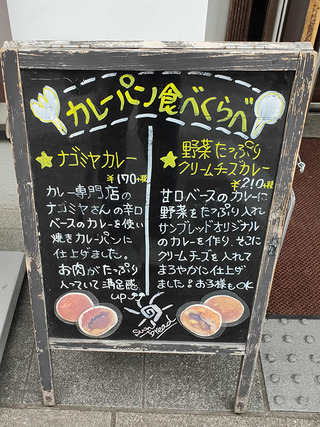 カレーパン食べくらべ
ナゴミヤカレー
¥170
カレー専門店の
ナゴミヤさんの辛口
ベースのカレーを使い
焼きカレーパンに
仕上げました。
お肉がたっぷり
入っていて満足感
up
野菜たっぷり
クリームチーズカレー
¥210
甘口ベースのカレーに
野菜をたっぷり入れ
サンブレッドオリジナル
のカレーを作り、そこに
クリームチーズを入れて
まろやかに仕上げ
ました。お子様もOK
Sun
bread